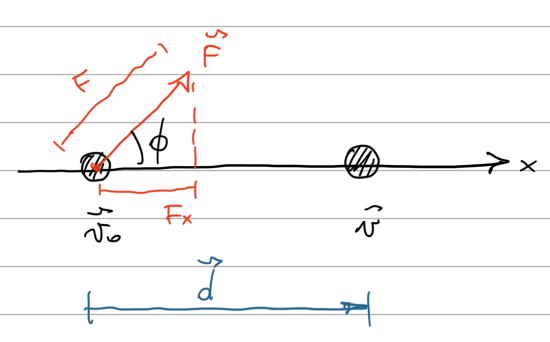 F
F⃗
ϕ
x
Fₓ
v⃗₀
v⃗
d⃗